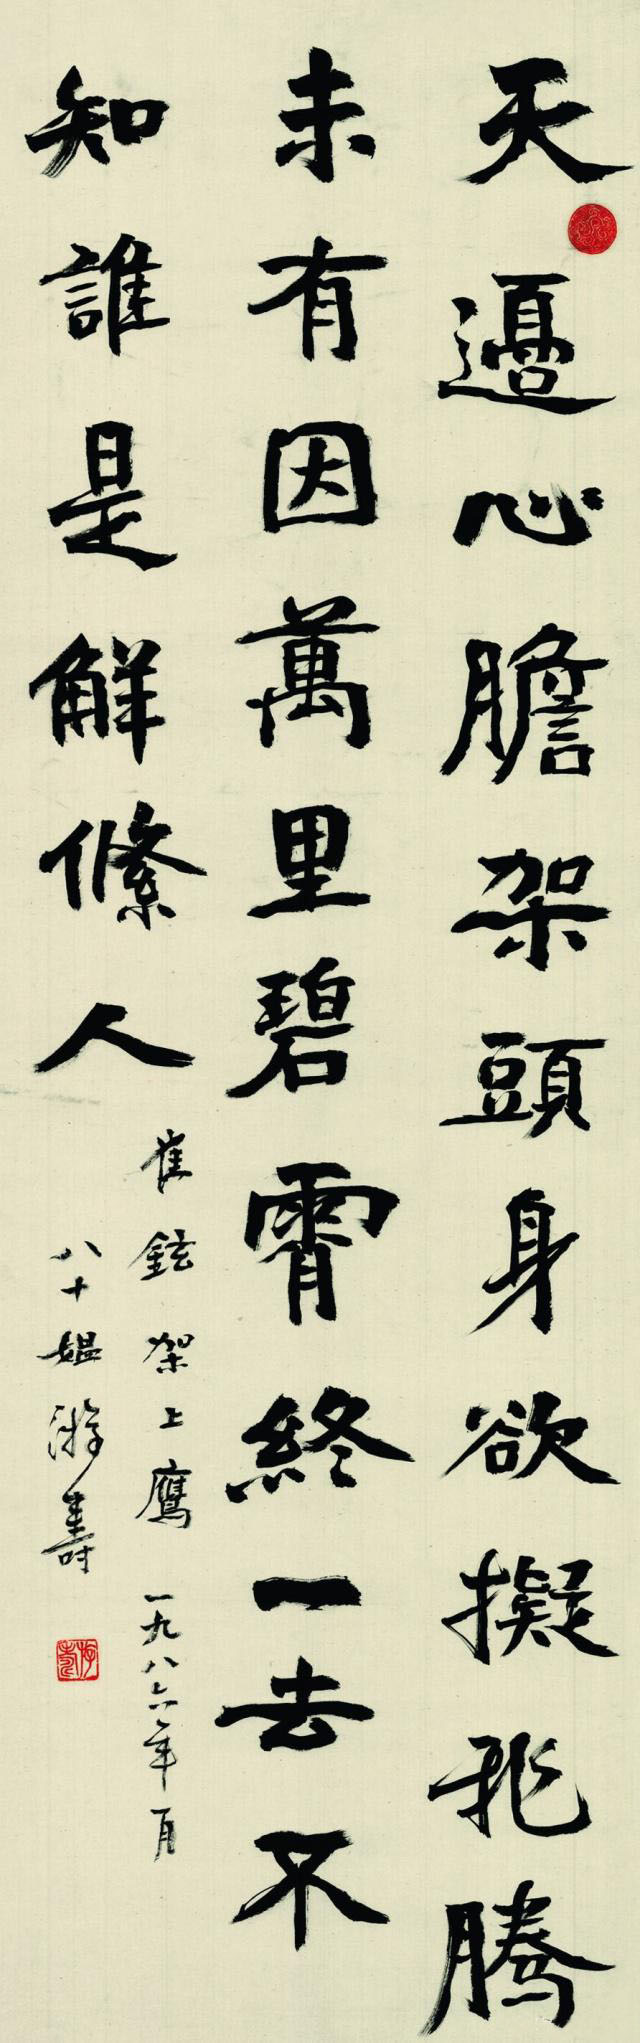 天邊心膽架頭身欲擬飛騰
未有因萬里碧霄終一去不
知誰是解絛人
崔鉉架上鷹 一九八六年一月
八十媼游壽
游壽